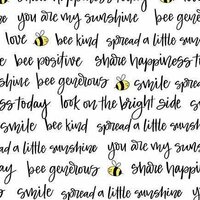 you are my sunshine bee generous
love bee kind spread a little sunshine
bee positive share happiness to
shine bee generous smile spread
ss today look on the bright side
smile bee kind spread a little sunsh
you are my sunshine
ay bee generous share happin
smile spread a little sunshine y